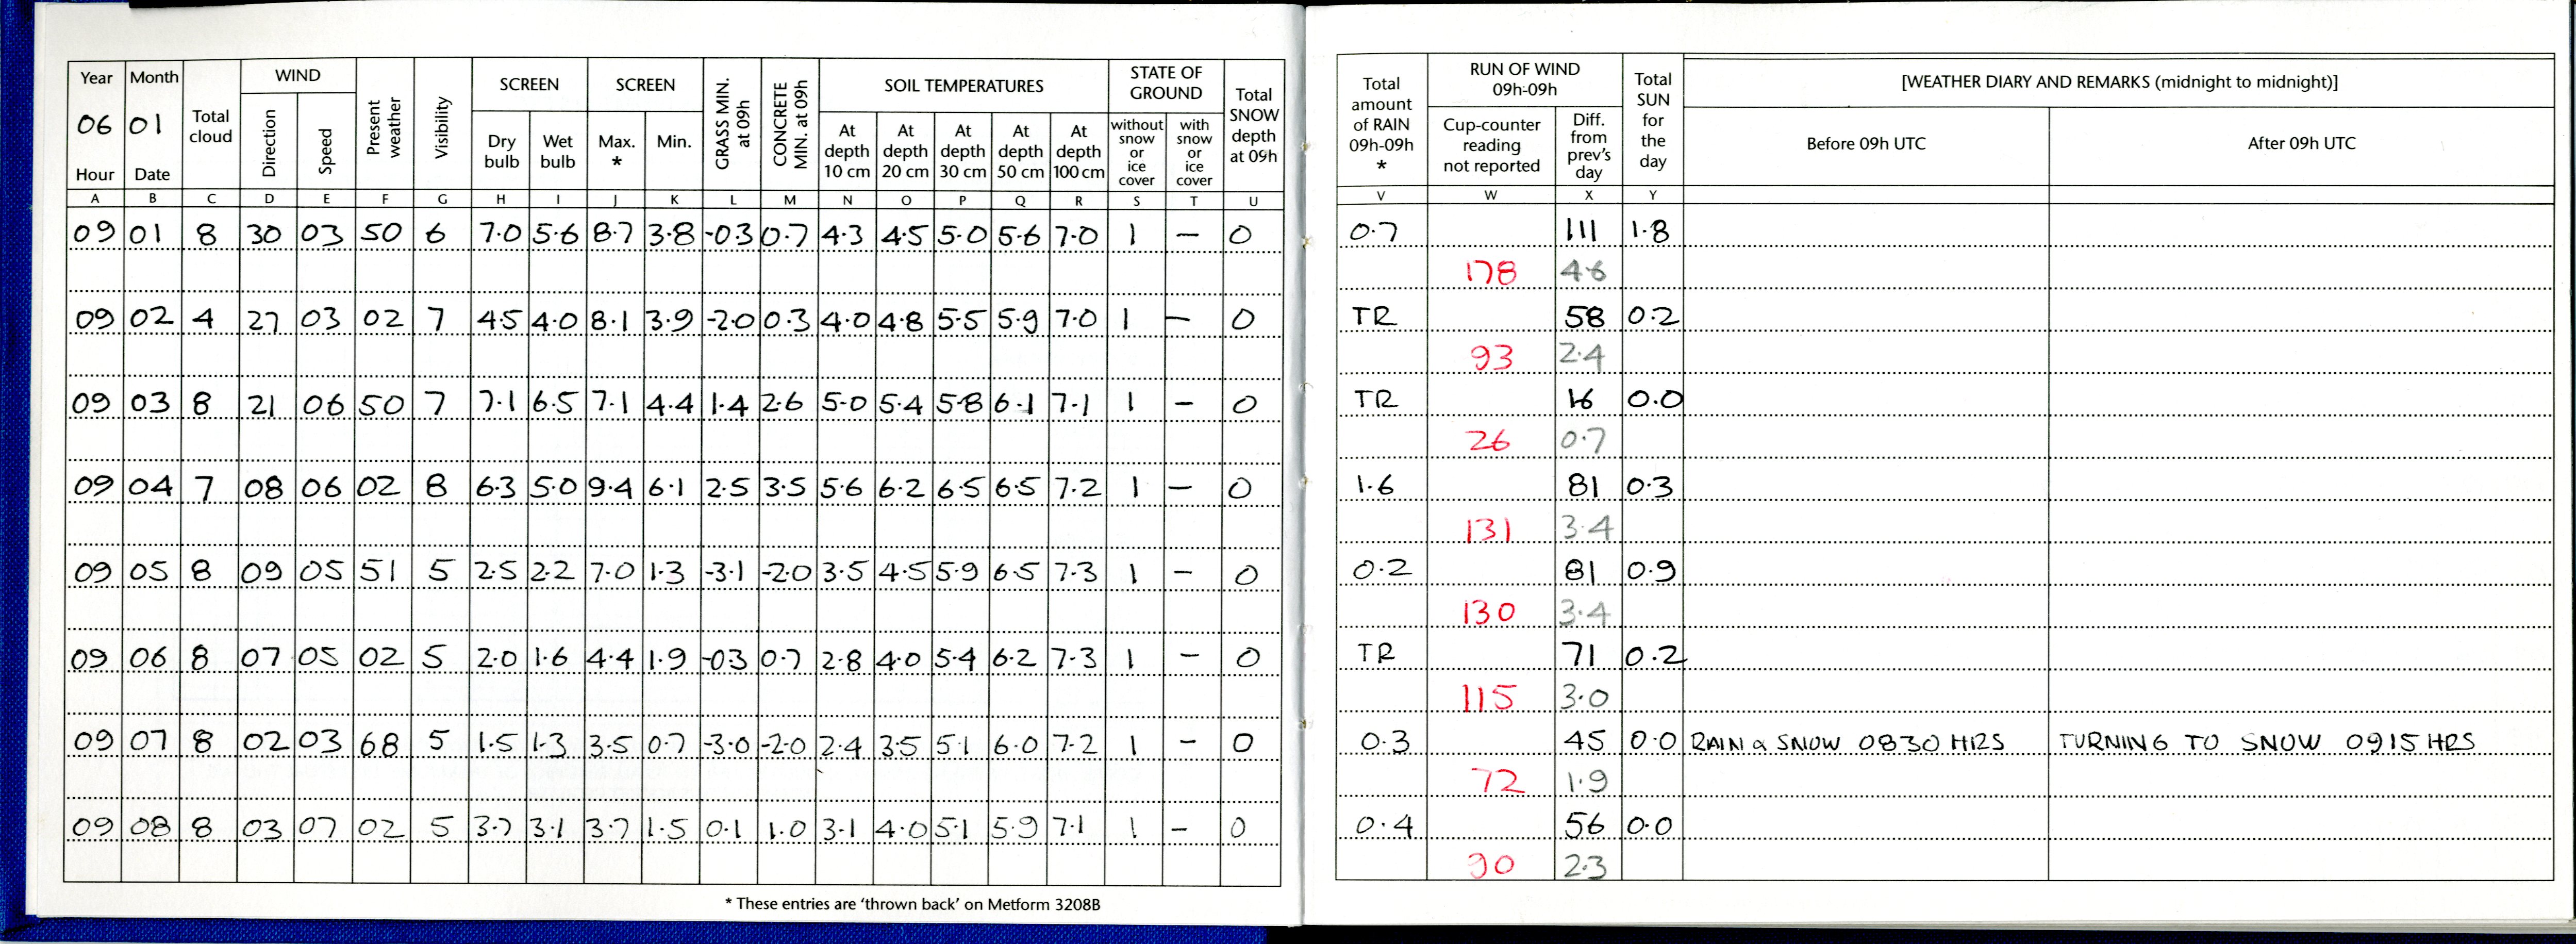 Year Month Total cloud WIND Present weather Visibility SCREEN SCREEN GRASS MIN. at 09h CONCRETE MIN. at 09h SOIL TEMPERATURES STATE OF GROUND Total SNOW depth at 09h
06 01 Direction Speed Dry bulb Wet bulb Max. * Min. At depth 10 cm At depth 20 cm At depth 30 cm At depth 50 cm At depth 100 cm without snow or ice cover with snow or ice cover
Hour Date
A B C D E F G H I J K L M N O P Q R S T U
09 01 8 30 03 50 6 7.0 5.6 8.7 3.8 -03 0.7 4.3 4.5 5.0 5.6 7.0 1 — 0
09 02 4 27 03 02 7 45 4.0 8.1 3.9 -2.0 0.3 4.0 4.8 5.5 5.9 7.0 1 — 0
09 03 8 21 06 50 7 7.1 6.5 7.1 4.4 1.4 2.6 5.0 5.4 5.8 6.1 7.1 1 — 0
09 04 7 08 06 02 8 6.3 5.0 9.4 6.1 2.5 3.5 5.6 6.2 6.5 6.5 7.2 1 — 0
09 05 8 09 05 51 5 2.5 2.2 7.0 1.3 -3.1 -2.0 3.5 4.5 5.9 6.5 7.3 1 — 0
09 06 8 07 05 02 5 2.0 1.6 4.4 1.9 -03 0.7 2.8 4.0 5.4 6.2 7.3 1 — 0
09 07 8 02 03 68 5 1.5 1.3 3.5 0.7 -3.0 -2.0 2.4 3.5 5.1 6.0 7.2 1 — 0
09 08 8 03 07 02 5 3.7 3.1 3.7 1.5 0.1 1.0 3.1 4.0 5.1 5.9 7.1 1 — 0
* These entries are 'thrown back' on Metform 3208B
Total amount of RAIN 09h-09h * RUN OF WIND 09h-09h Total SUN for the day [WEATHER DIARY AND REMARKS (midnight to midnight)]
Cup-counter reading not reported Diff. from prev's day Before 09h UTC After 09h UTC
V W X Y
0.7 111 1.8
178 4.6
TR 58 0.2
93 2.4
TR 16 0.0
26 0.7
1.6 81 0.3
131 3.4
0.2 81 0.9
130 3.4
TR 71 0.2
115 3.0
0.3 45 0.0 RAIN & SNOW 0830 HRS TURNING TO SNOW 0915 HRS
72 1.9
0.4 56 0.0
90 2.3